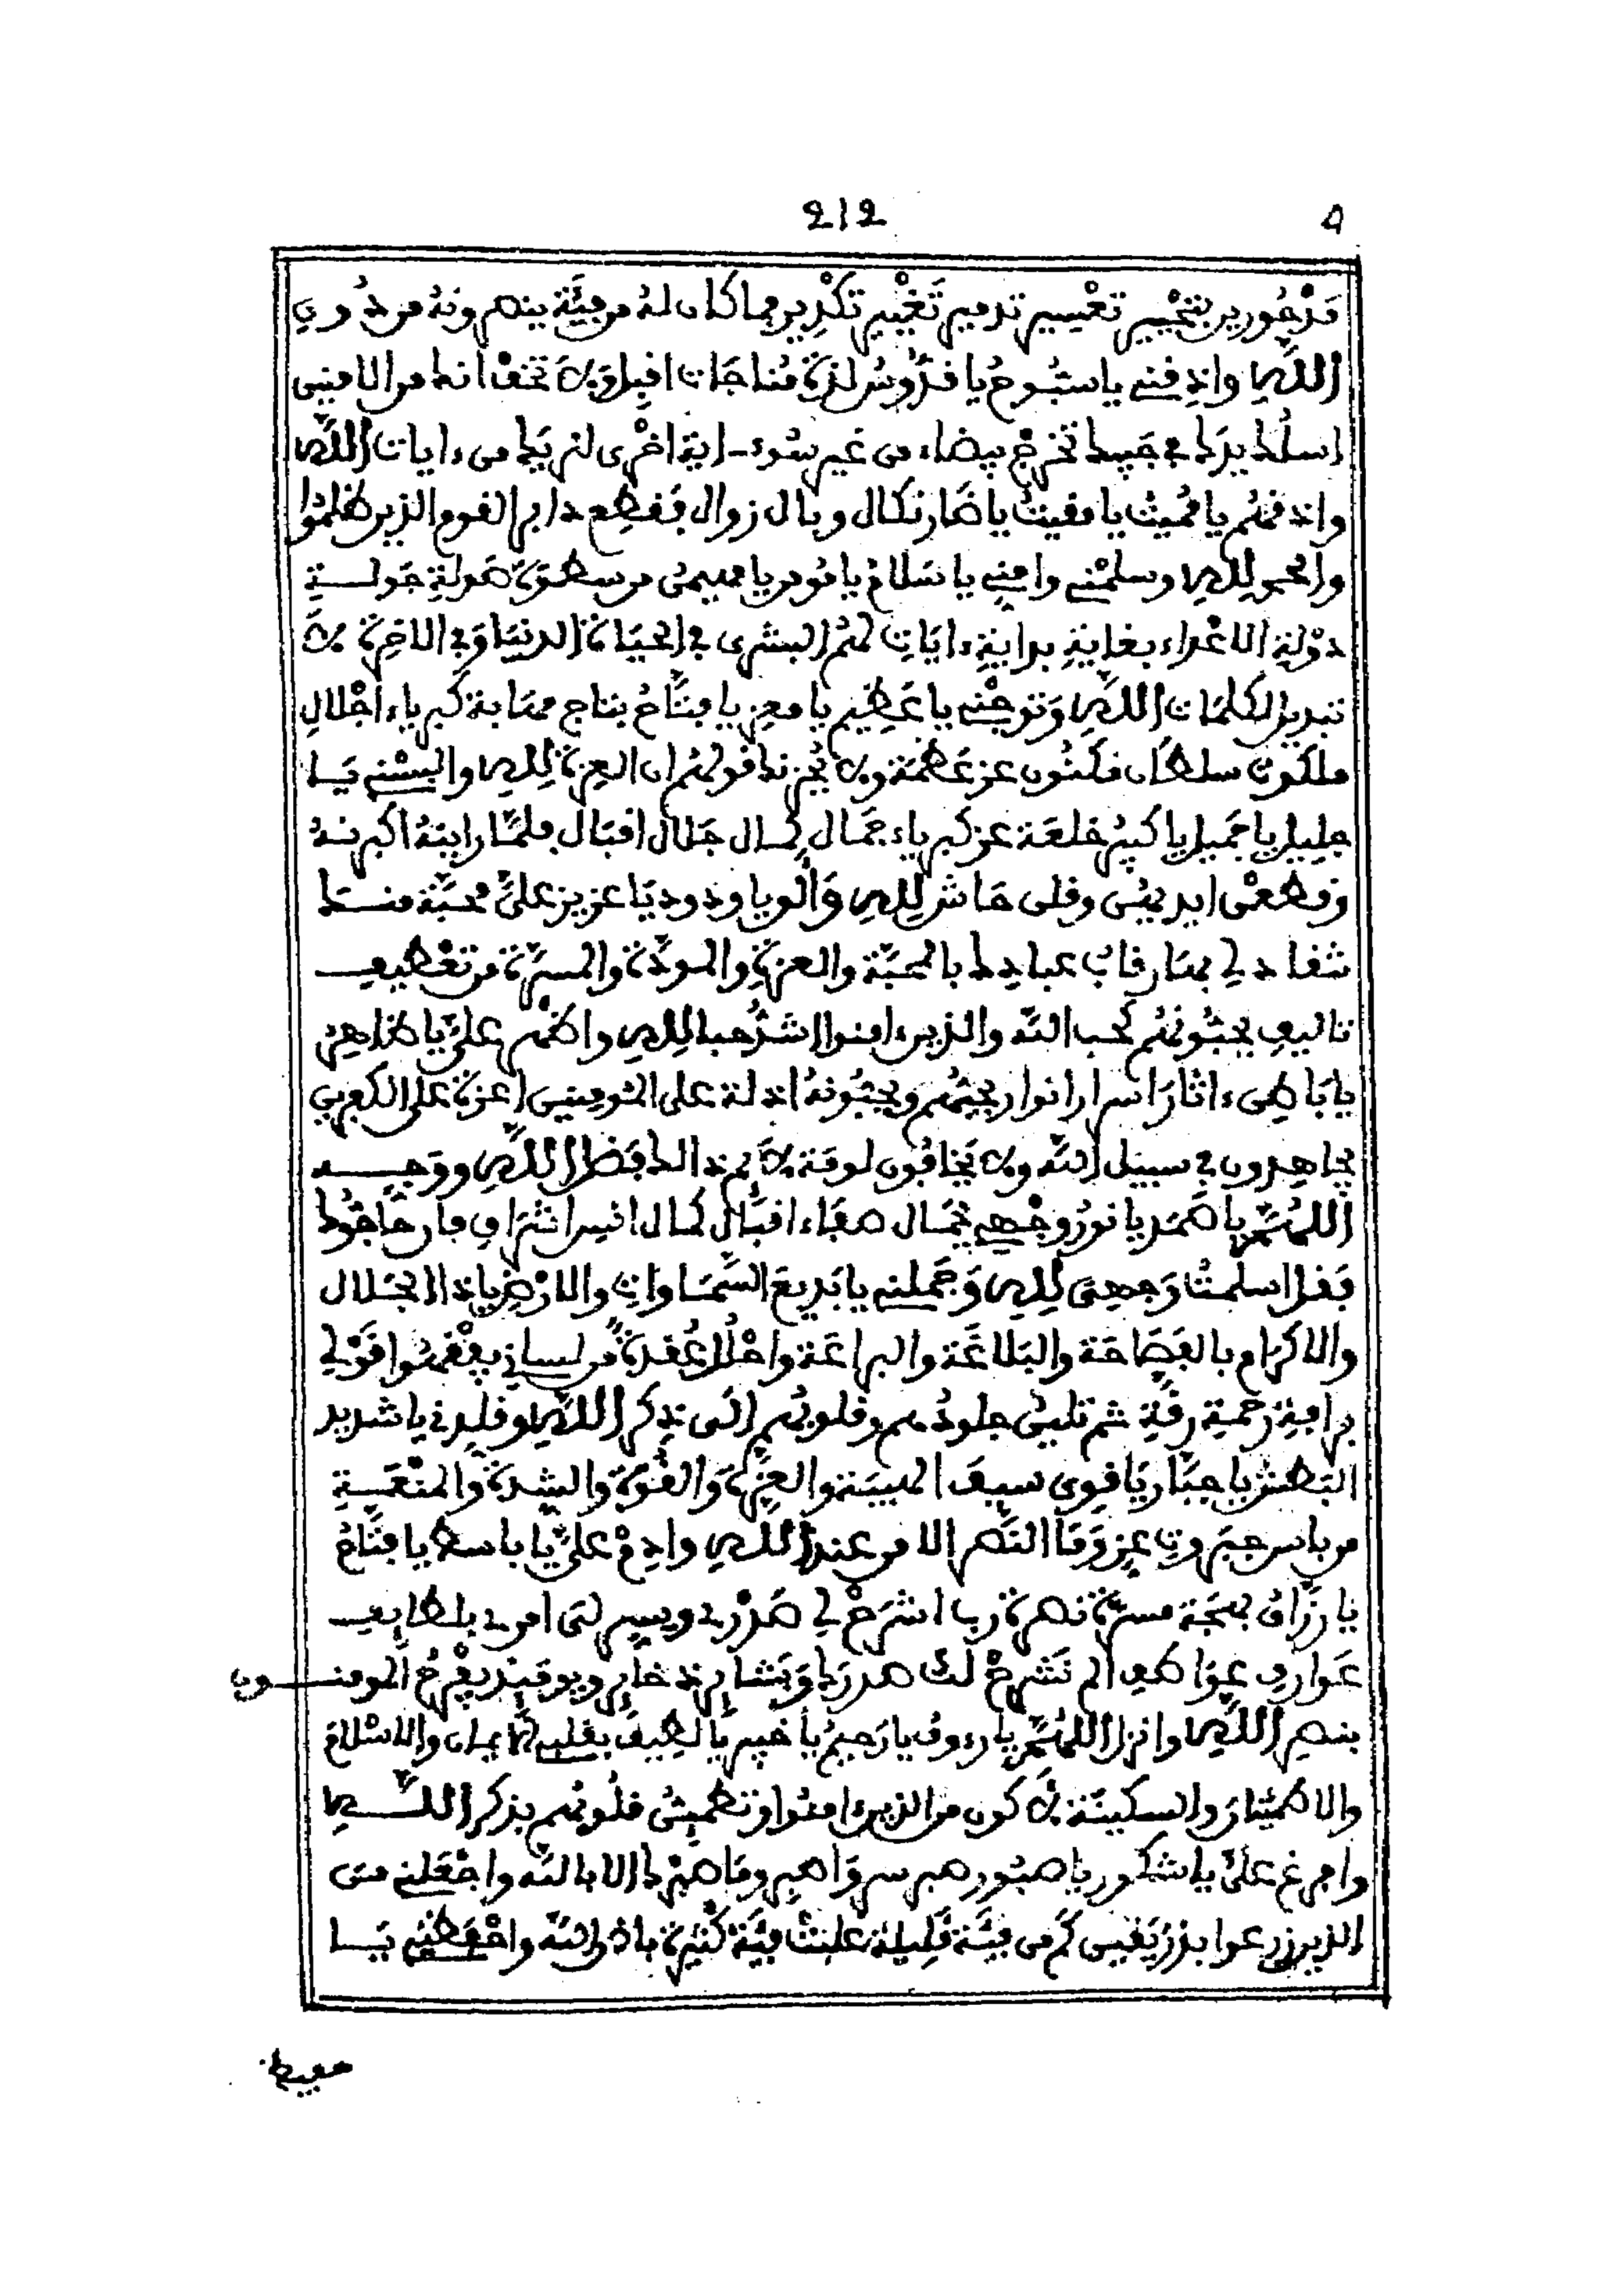 212
مدحورين بتخسير تغيير تدمير تغيير تكدير فما كان له من فئة ينصرونه من دون
الله واذقني يا سبوح يا قدوس لذة مناجات اقبل ولا تخف انك من الامنين
اسلك يدك في جيبك تخرج بيضاء من غير سوء اية اخرى لنريك من ءايات الله
واذقهم يا مميت يا مقيت يا ضار نكال وبال زوال فقطع دابر القوم الذين ظلموا
والحمد لله وسلمني وامني يا سلام يا مومن يا مهيمن من سطوة صولة جولة
دولة الاعداء بغاية بداية ءايات لهم البشرى في الحياة الدنيا وفي الاخرة لا
تبديل لكلمات الله وتوجني يا عظيم يا معز يا فتاح بتاج مهابة كبرياء اجلال
ملكوت سلطان مكنون عز عظمة ولا يحزنك قولهم ان العزة لله والبسني يا
جليل يا جميل يا كبير خلعة عز كبرياء جمال كمال جلال اقبال فلما راينه اكبرنه
وقطعن ايديهن وقلن حاش لله وألق يا ودود يا عزيز علي محبة منك
تنقاد لي بها رقاب عبادك بالمحبة والعزة والمودة والمسرة من تعطيف
تاليف يحبونهم كحب الله والذين ءامنوا اشد حبا لله واظهر علي يا ظاهر
يا باطن ءاثار اسرار انوار يحبهم ويحبونه اذلة على المومنين اعزة على الكفرين
يجاهدون في سبيل الله ولا يخافون لومة لائم ذلك فضل الله ووجه
اللهم يا صمد يا نور وجهي بجمال صفاء اقبال كمال انس اشراق فان حاجوك
فقل اسلمت وجهي لله وجملني يا بديع السماوات والارض يا ذا الجلال
والاكرام بالفصاحة والبلاغة والبراعة واحلل عقدة من لساني يفقهوا قولي
برافة رحمة رقة ثم تلين جلودهم وقلوبهم الى ذكر الله وقلدني يا شديد
البطش يا جبار يا قوي سيف الهيبة والعزة والقوة والشدة والمنعة
من باس جبروت عز وما النصر الا من عند الله وادم علي يا باسط يا فتاح
يا رزاق بهجة مسرة نصرة رب اشرح لي صدري ويسر لي امري بلطايف
عوارف عواطف الم نشرح لك صدرك وبشاير ذخاير ويومئذ يفرح المومنون
بنصر الله وانزل اللهم يا رءوف يا رحيم يا خبير يا لطيف بقلبي الايمان والاسلام
والاطمئنان والسكينة لاكون من الذين ءامنوا وتطمئن قلوبهم بذكر الله
وافرغ علي يا شكور يا صبور صبر سر واصبر وما صبرك الا بالله واجعلني من
الذين تدرعوا بدرع يقين كم من فئة قليلة غلبت فئة كثيرة باذن الله واحفظني يا
حفيظ